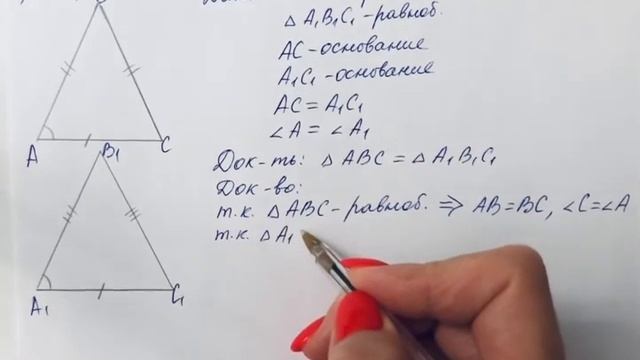 △ A₁B₁C₁ - равноб.
AC - основание
A₁C₁ - основание
AC = A₁C₁
∠A = ∠A₁
Док-ть: △ ABC = △ A₁B₁C₁
Док-во:
т.к. △ ABC - равноб. ⇒ AB=BC, ∠C=∠A
т.к. △ A₁
A
C
B₁
A₁
C₁